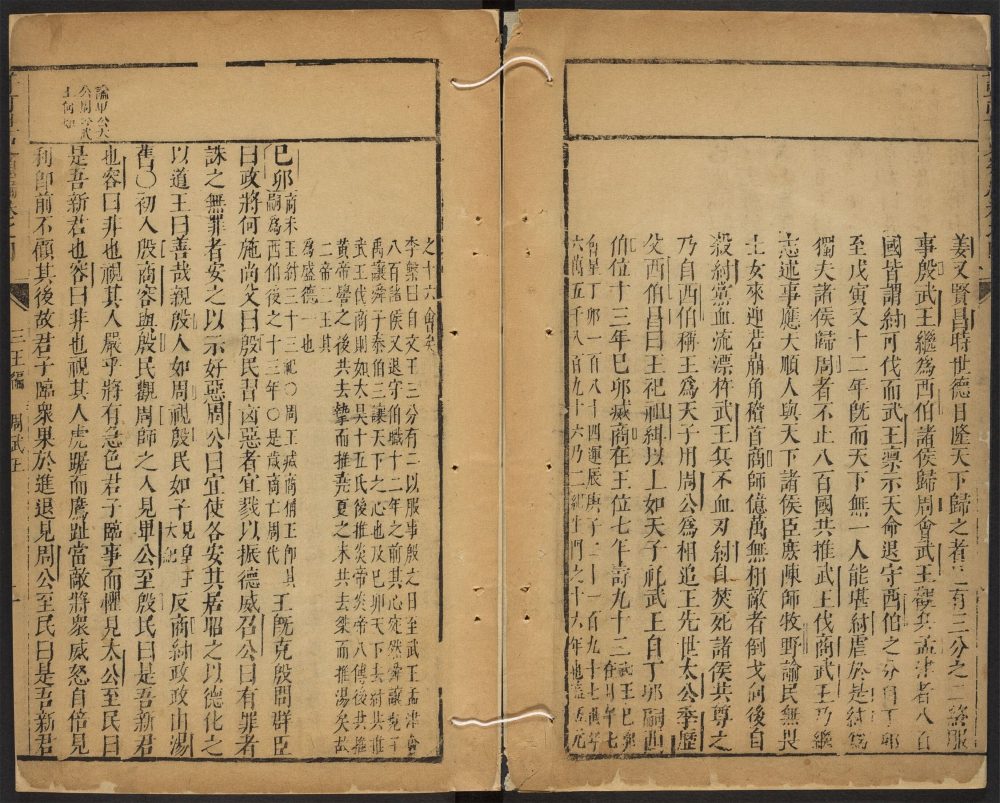 姜又賢昌時世德日隆天下歸之者三有三分之二終服
事殷武王繼爲西伯諸侯歸周會武王觀兵孟津者八百
國皆謂紂可伐而武王稟示天命退守西伯之分自丁卯
至戊寅又十二年旣而天下無一人能堪紂虐於是紂爲
獨夫諸侯歸周者不止八百國共推武王伐商武王乃繼
志述事應天順人與天下諸侯臣庶陳師牧野諭民無畏
士女來迎若崩角稽首商師億萬無相敵者倒戈向後自
殺紂黨血流漂杵武王兵不血刃紂自焚死諸侯共尊之
乃自西伯稱王爲天子用周公爲相追王先世太公季歷
父西伯昌曰王祀祖紺以上如天子禮武王自丁卯嗣西
伯位十三年巳卯滅商在王位七年壽九十三
武王巳卯
六萬五千八百九十六乃二
之十六會矣
李槃曰自文王三分有二以服事殷之日至武王孟津會
八百諸侯又退守伯職十二年之前其心定然舜讓堯子
禹讓舜子泰伯三讓天下之心也及巳卯天下去紂共推
武王伐商則如太昊十五氏後推炎帝炎帝八傳後世推
黃帝嚳之後共去摯而推堯夏之末共去桀而推湯矣故
二帝三王其
爲盛德一也
巳卯
商末王紂三十三祀〇周王滅商稱王卽其
嗣爲西伯後之十三年〇是歲商亡周代
王旣克殷問群臣
曰政將何施尚父曰殷民習凶惡者宜戮以振德威召公曰有罪者
誅之無罪者安之以示好惡周公曰宜使各安其居昭之以德化之
以道王曰善哉視殷人如周視殷民如子
見皇王
大紀
反商紂政政由湯
舊〇初入殷商容與殷民觀周師之入見畢公至殷民曰是吾新君
論畢公太
公周公武
王何如
也容曰非也視其人嚴乎將有急色君子臨事而懼見太公至民曰
是吾新君也容曰非也視其人虎踞而鷹趾當敵將衆威怒自倍見
利卽前不顧其後故君子臨衆果於進退見周公至民曰是吾新君
三王編
周武王